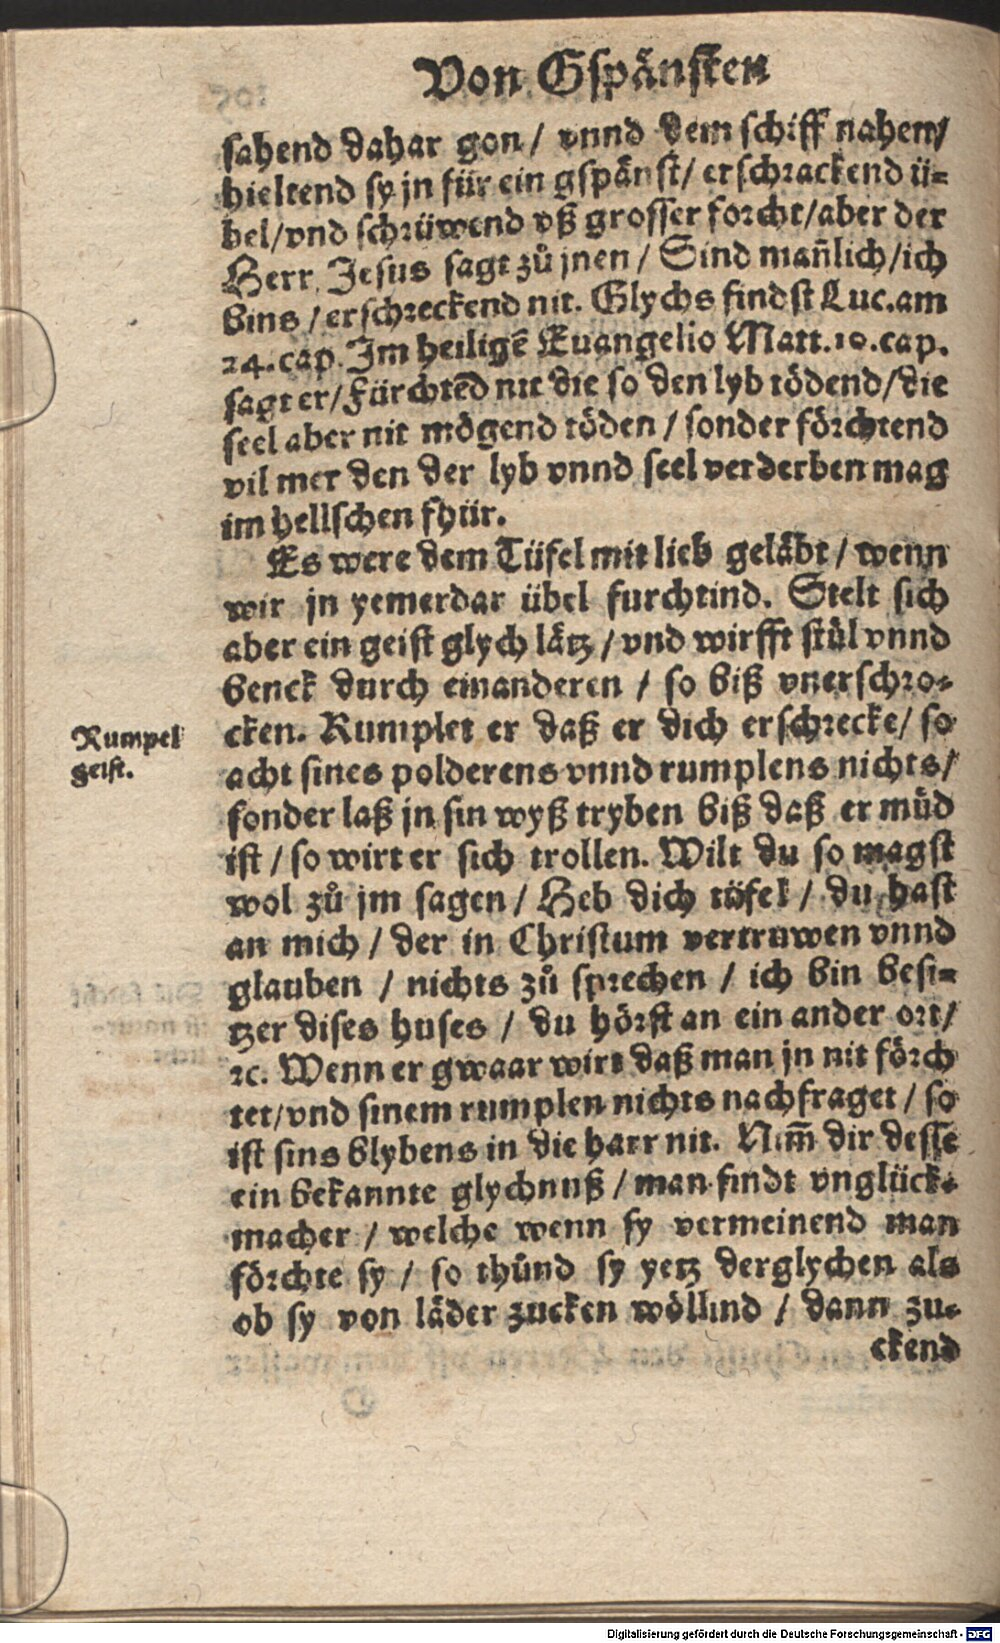 Von Gspånsten
sahend dahar gon / vnnd dem schiff nahen/
hieltend sy jn für ein gspånst / erschrackend ü-
bel / vnd schrüwend vß grosser forcht / aber der
Herr Jesus sagt zů jnen / Sind mañlich / ich
bins / erschreckend nit. Glychs findst Luc. am
24. cap. Im heiligē Euangelio Matt. 10. cap.
sagt er / Fürchtēd nit die so den lyb tödend / die
seel aber nit mögend töden / sonder förchtend
vil mer den der lyb vnnd seel verderben mag
im hellschen fhür.
Es were dem Tüfel mit lieb geläbt / wenn
wir jn yemerdar übel furchtind. Stelt sich
aber ein geist glych lätz / vnd wirfft stůl vnnd
benck durch einanderen / so biß vnerschro-
cken. Rumplet er daß er dich erschrecke / so
Rumpel
geist.
acht sines polderens vnnd rumplens nichts /
sonder laß jn sin wyß tryben biß daß er müd
ist / so wirt er sich trollen. Wilt du so magst
wol zů jm sagen / Heb dich tüfel / du hast
an mich / der in Christum vertruwen vnnd
glauben / nichts zů sprechen / ich bin besi-
tzer dises huses / du hörst an ein ander ort /
ꝛc. Wenn er gwaar wirt daß man jn nit förch
tet / vnd sinem rumplen nichts nachfraget / so
ist sins blybens in die harr nit. Nim̄ dir desse
ein bekannte glychnuß / man findt vnglück-
macher / welche wenn sy vermeinend man
förchte sy / so thůnd sy yetz derglychen als
ob sy von läder zucken wöllind / dann zu-
ckend
Digitalisierung gefördert durch die Deutsche Forschungsgemeinschaft - DFG